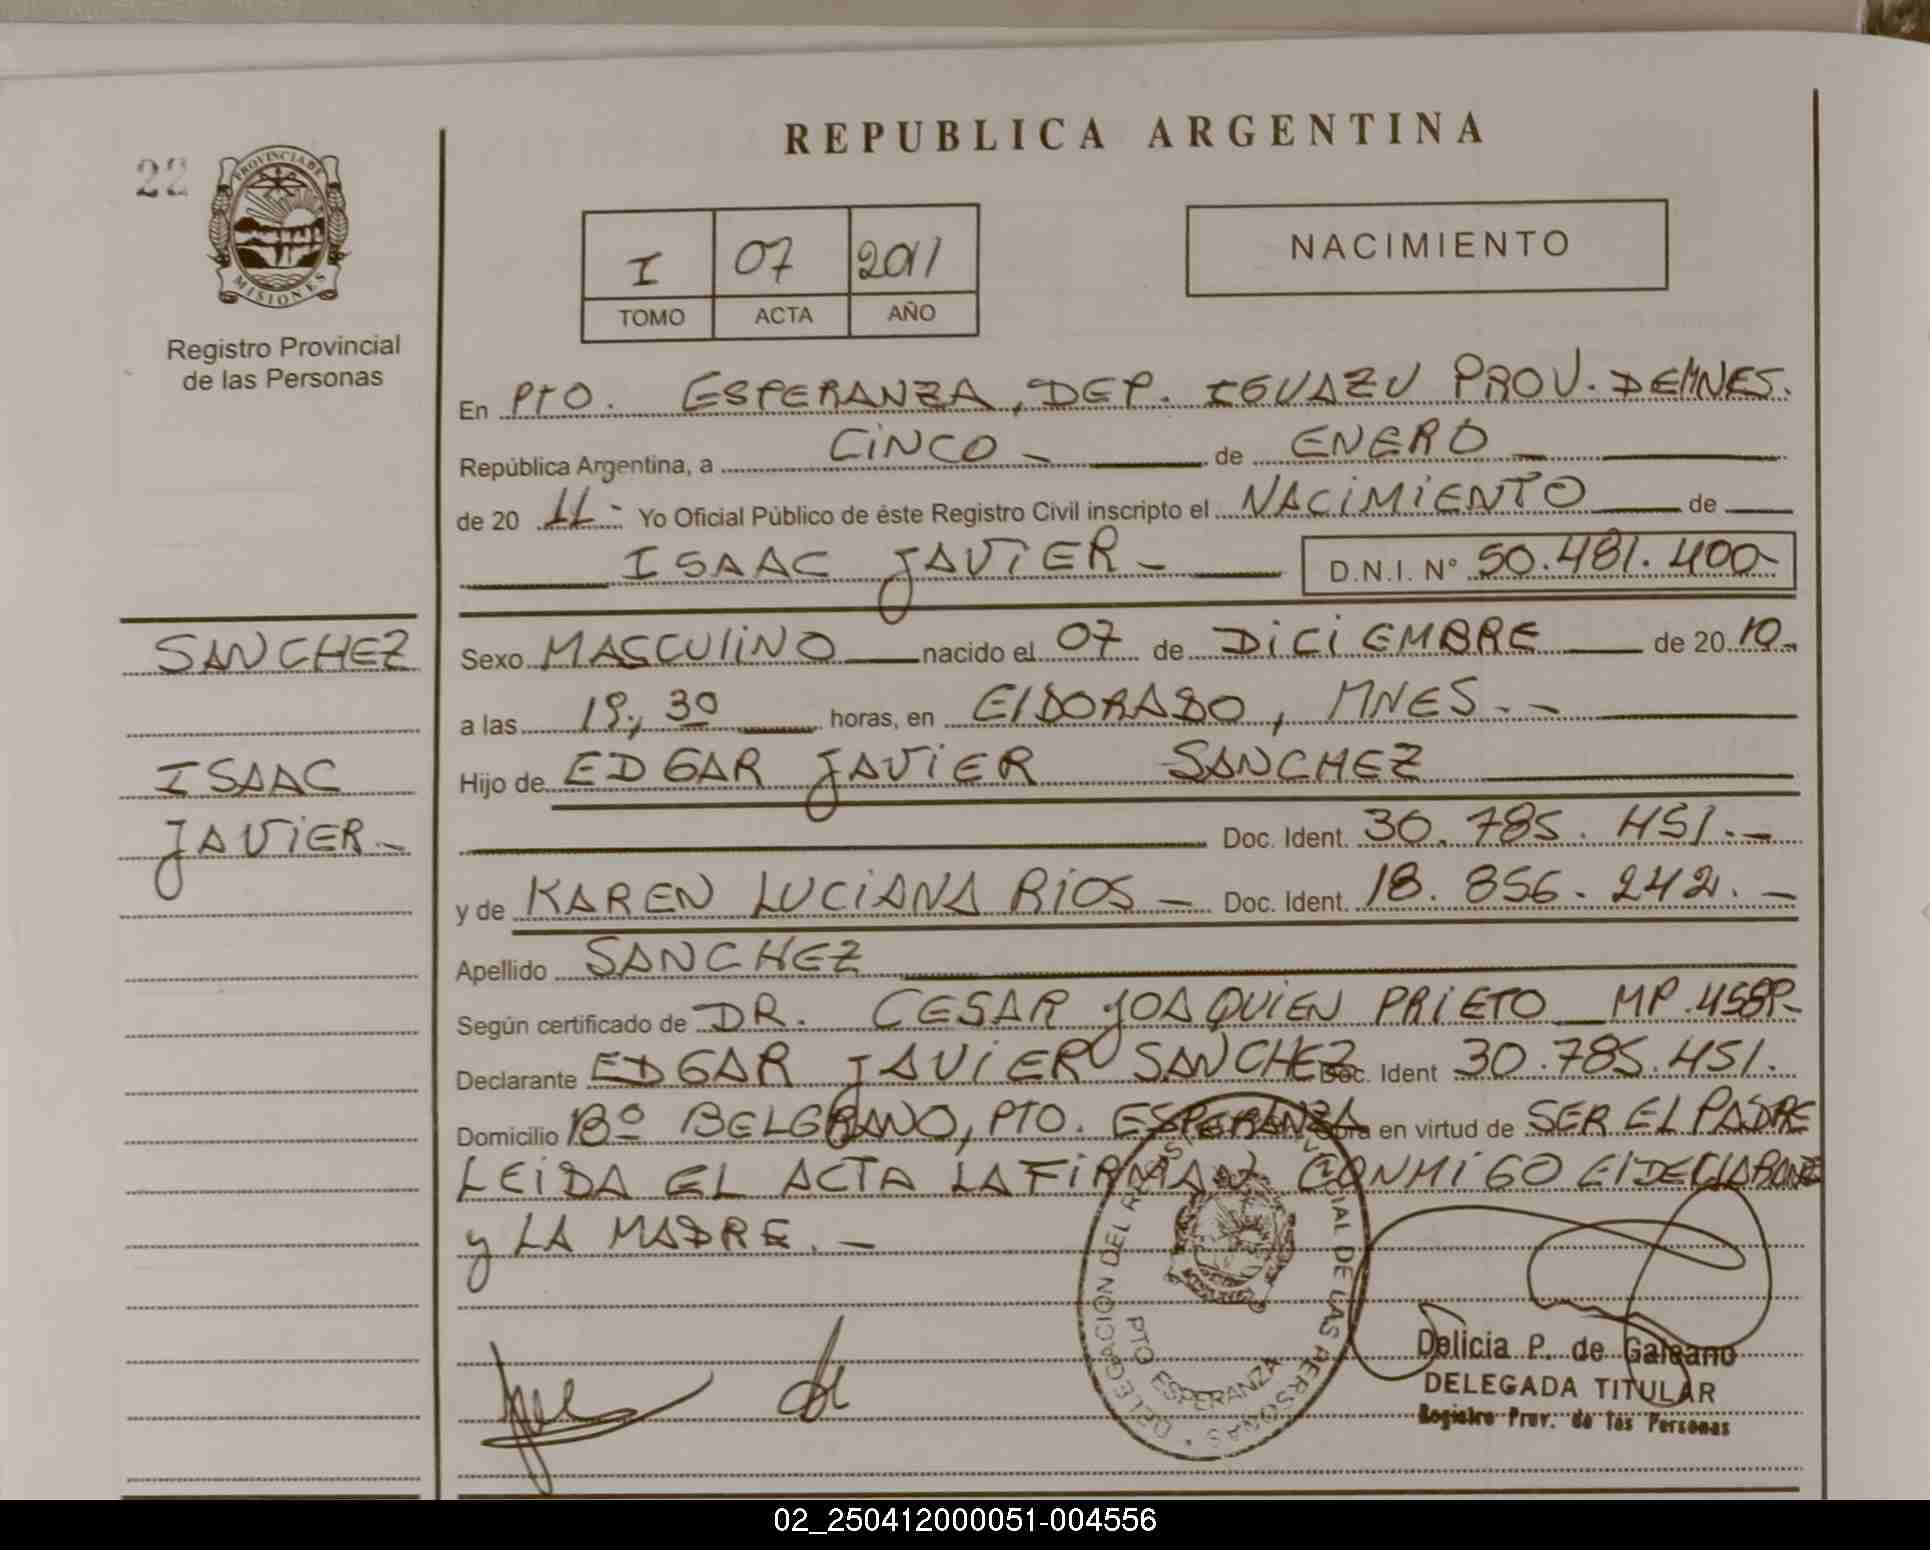 REPUBLICA ARGENTINA
22
PROVINCIA DE
MISIONES
Registro Provincial
de las Personas
I 07 2011
TOMO ACTA AÑO
NACIMIENTO
En PTO. ESPERANZA, DEP. IGUAZU PROV. DE MNES.
República Argentina, a CINCO - de ENERO
de 20 11- Yo Oficial Público de éste Registro Civil inscripto el NACIMIENTO de
ISAAC JAVIER - D.N.I. N° 50.481.400-
SANCHEZ
ISAAC
JAVIER -
Sexo MASCULINO nacido el 07 de DICIEMBRE de 20 10-
a las 19,30 horas, en ELDORADO, MNES. -
Hijo de EDGAR JAVIER SANCHEZ
Doc. Ident. 30.785.451.-
y de KAREN LUCIANA RIOS - Doc. Ident. 18.856.242. -
Apellido SANCHEZ
Según certificado de DR. CESAR JOAQUIEN PRIETO MP.
Declarante EDGAR JAVIER SANCHEZ Doc. Ident 30.785.451.
Domicilio Bº BELGRANO, PTO. ESPERANZA Obra en virtud de SER EL PADRE
LEIDA EL ACTA LA FIRMAN CONMIGO EL DECLARANTE
y LA MADRE. -
DELEGACION DEL REGISTRO PROVINCIAL DE LAS PERSONAS
PTO ESPERANZA
Delicia P. de Galeano
DELEGADA TITULAR
Registro Prov. de las Personas
02_250412000051-004556